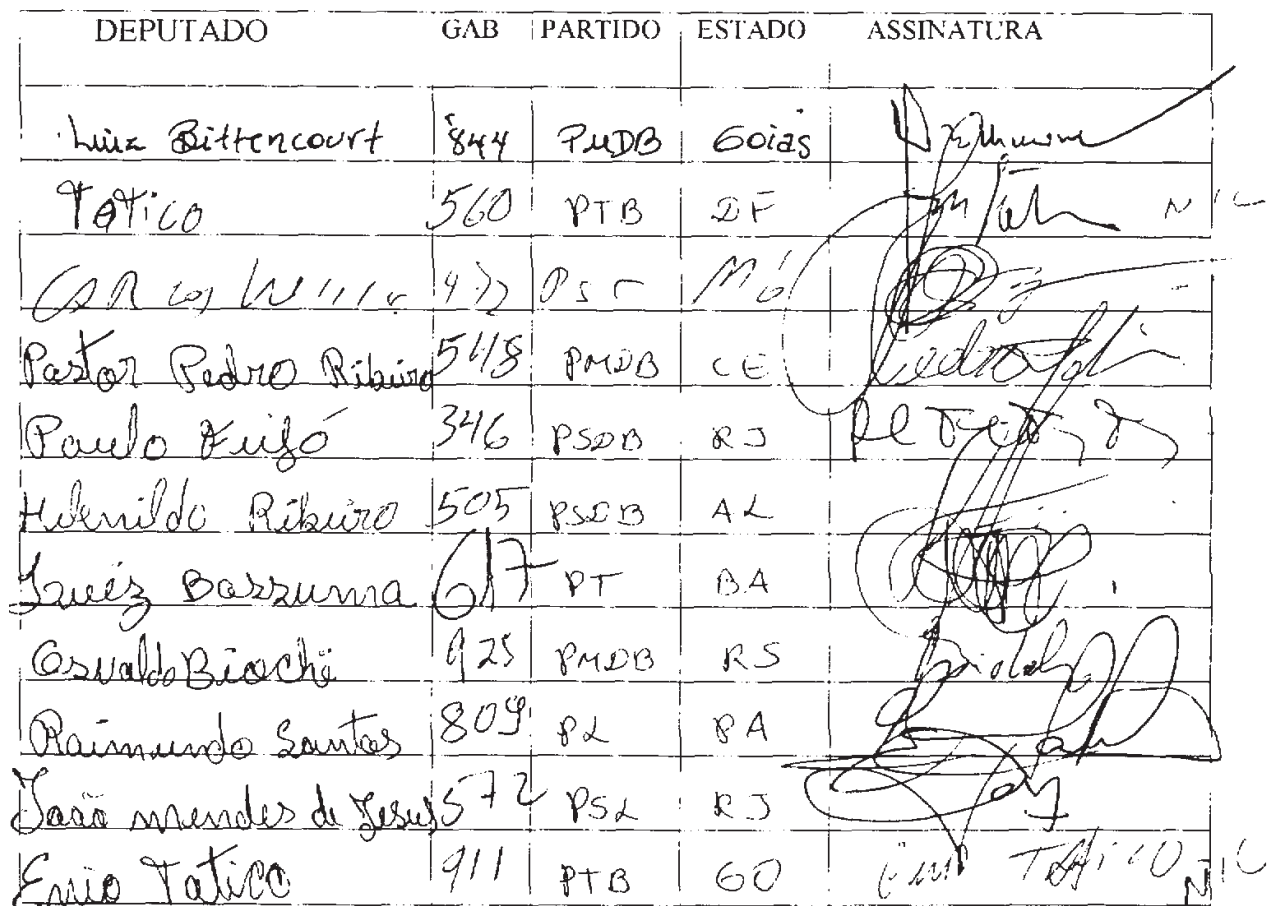 DEPUTADO GAB PARTIDO ESTADO ASSINATURA
Luiz Bittencourt 844 PMDB Goias
Tatico 560 PTB DF NIC
CARLOS 472 PSC MG
Pastor Pedro Ribeiro 548 PMDB CE
Paulo Feijó 346 PSDB RJ
Helenildo Ribeiro 505 PSDB AL
Luiz Bassuma 617 PT BA
Osvaldo Biochi 925 PMDB RS
Raimundo Santos 809 PL PA
João mendes de Jesus 572 PSL RJ
Enio Tatico 911 PTB GO TATICO NIC